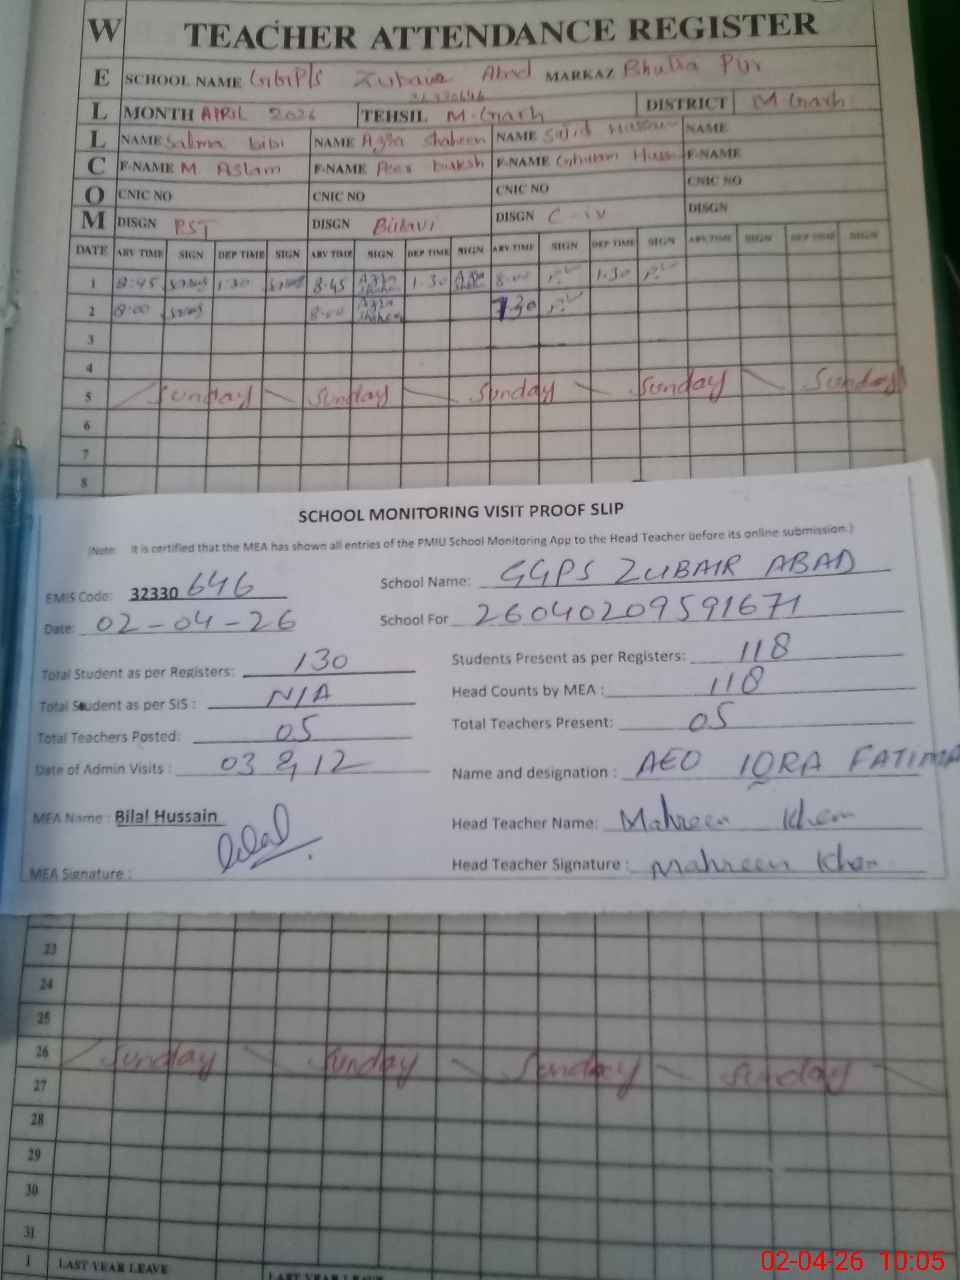 W TEACHER ATTENDANCE REGISTER
E SCHOOL NAME GGP/S Zubair Abad MARKAZ Bhutta Pur
32330646
L MONTH APRIL 2026 TEHSIL M-Garh DISTRICT M Garh
L NAME Salma bibi NAME Azra Shaheen NAME Sajid Hussain NAME
C F-NAME M Aslam F-NAME Peer Baksh F-NAME Ghulam Huss F-NAME
O CNIC NO CNIC NO CNIC NO CNIC NO
M DISGN PST DISGN DISGN C-iv DISGN
DATE ARV TIME SIGN DEP TIME SIGN ARV TIME SIGN DEP TIME SIGN ARV TIME SIGN DEP TIME SIGN ARV TIME SIGN DEP TIME SIGN
1 8:45 1:30 8:45 Azra Shaheen 1:30 Azra Shaheen 8:00 1:30
2 8:00 8:00 Azra Shaheen 7:30
3
4
5 Sunday Sunday Sunday Sunday Sunday
6
7
8
SCHOOL MONITORING VISIT PROOF SLIP
(Note: It is certified that the MEA has shown all entries of the PMIU School Monitoring App to the Head Teacher before its online submission.)
EMIS Code: 32330 646 School Name: GGPS ZUBAIR ABAD
Date: 02-04-26 School For 26040209591671
Total Student as per Registers: 130 Students Present as per Registers: 118
Total Student as per SIS : N/A Head Counts by MEA : 118
Total Teachers Posted: 05 Total Teachers Present: 05
Date of Admin Visits : 03 & 12 Name and designation : AEO IQRA FATIMA
MEA Name : Bilal Hussain Head Teacher Name: Mahreen Khan
MEA Signature : Bilal Head Teacher Signature : Mahreen Khan
23
24
25
26 Sunday Sunday Sunday Sunday
27
28
29
30
31
1 LAST YEAR LEAVE LAST YEAR LEAVE
02-04-26 10:05